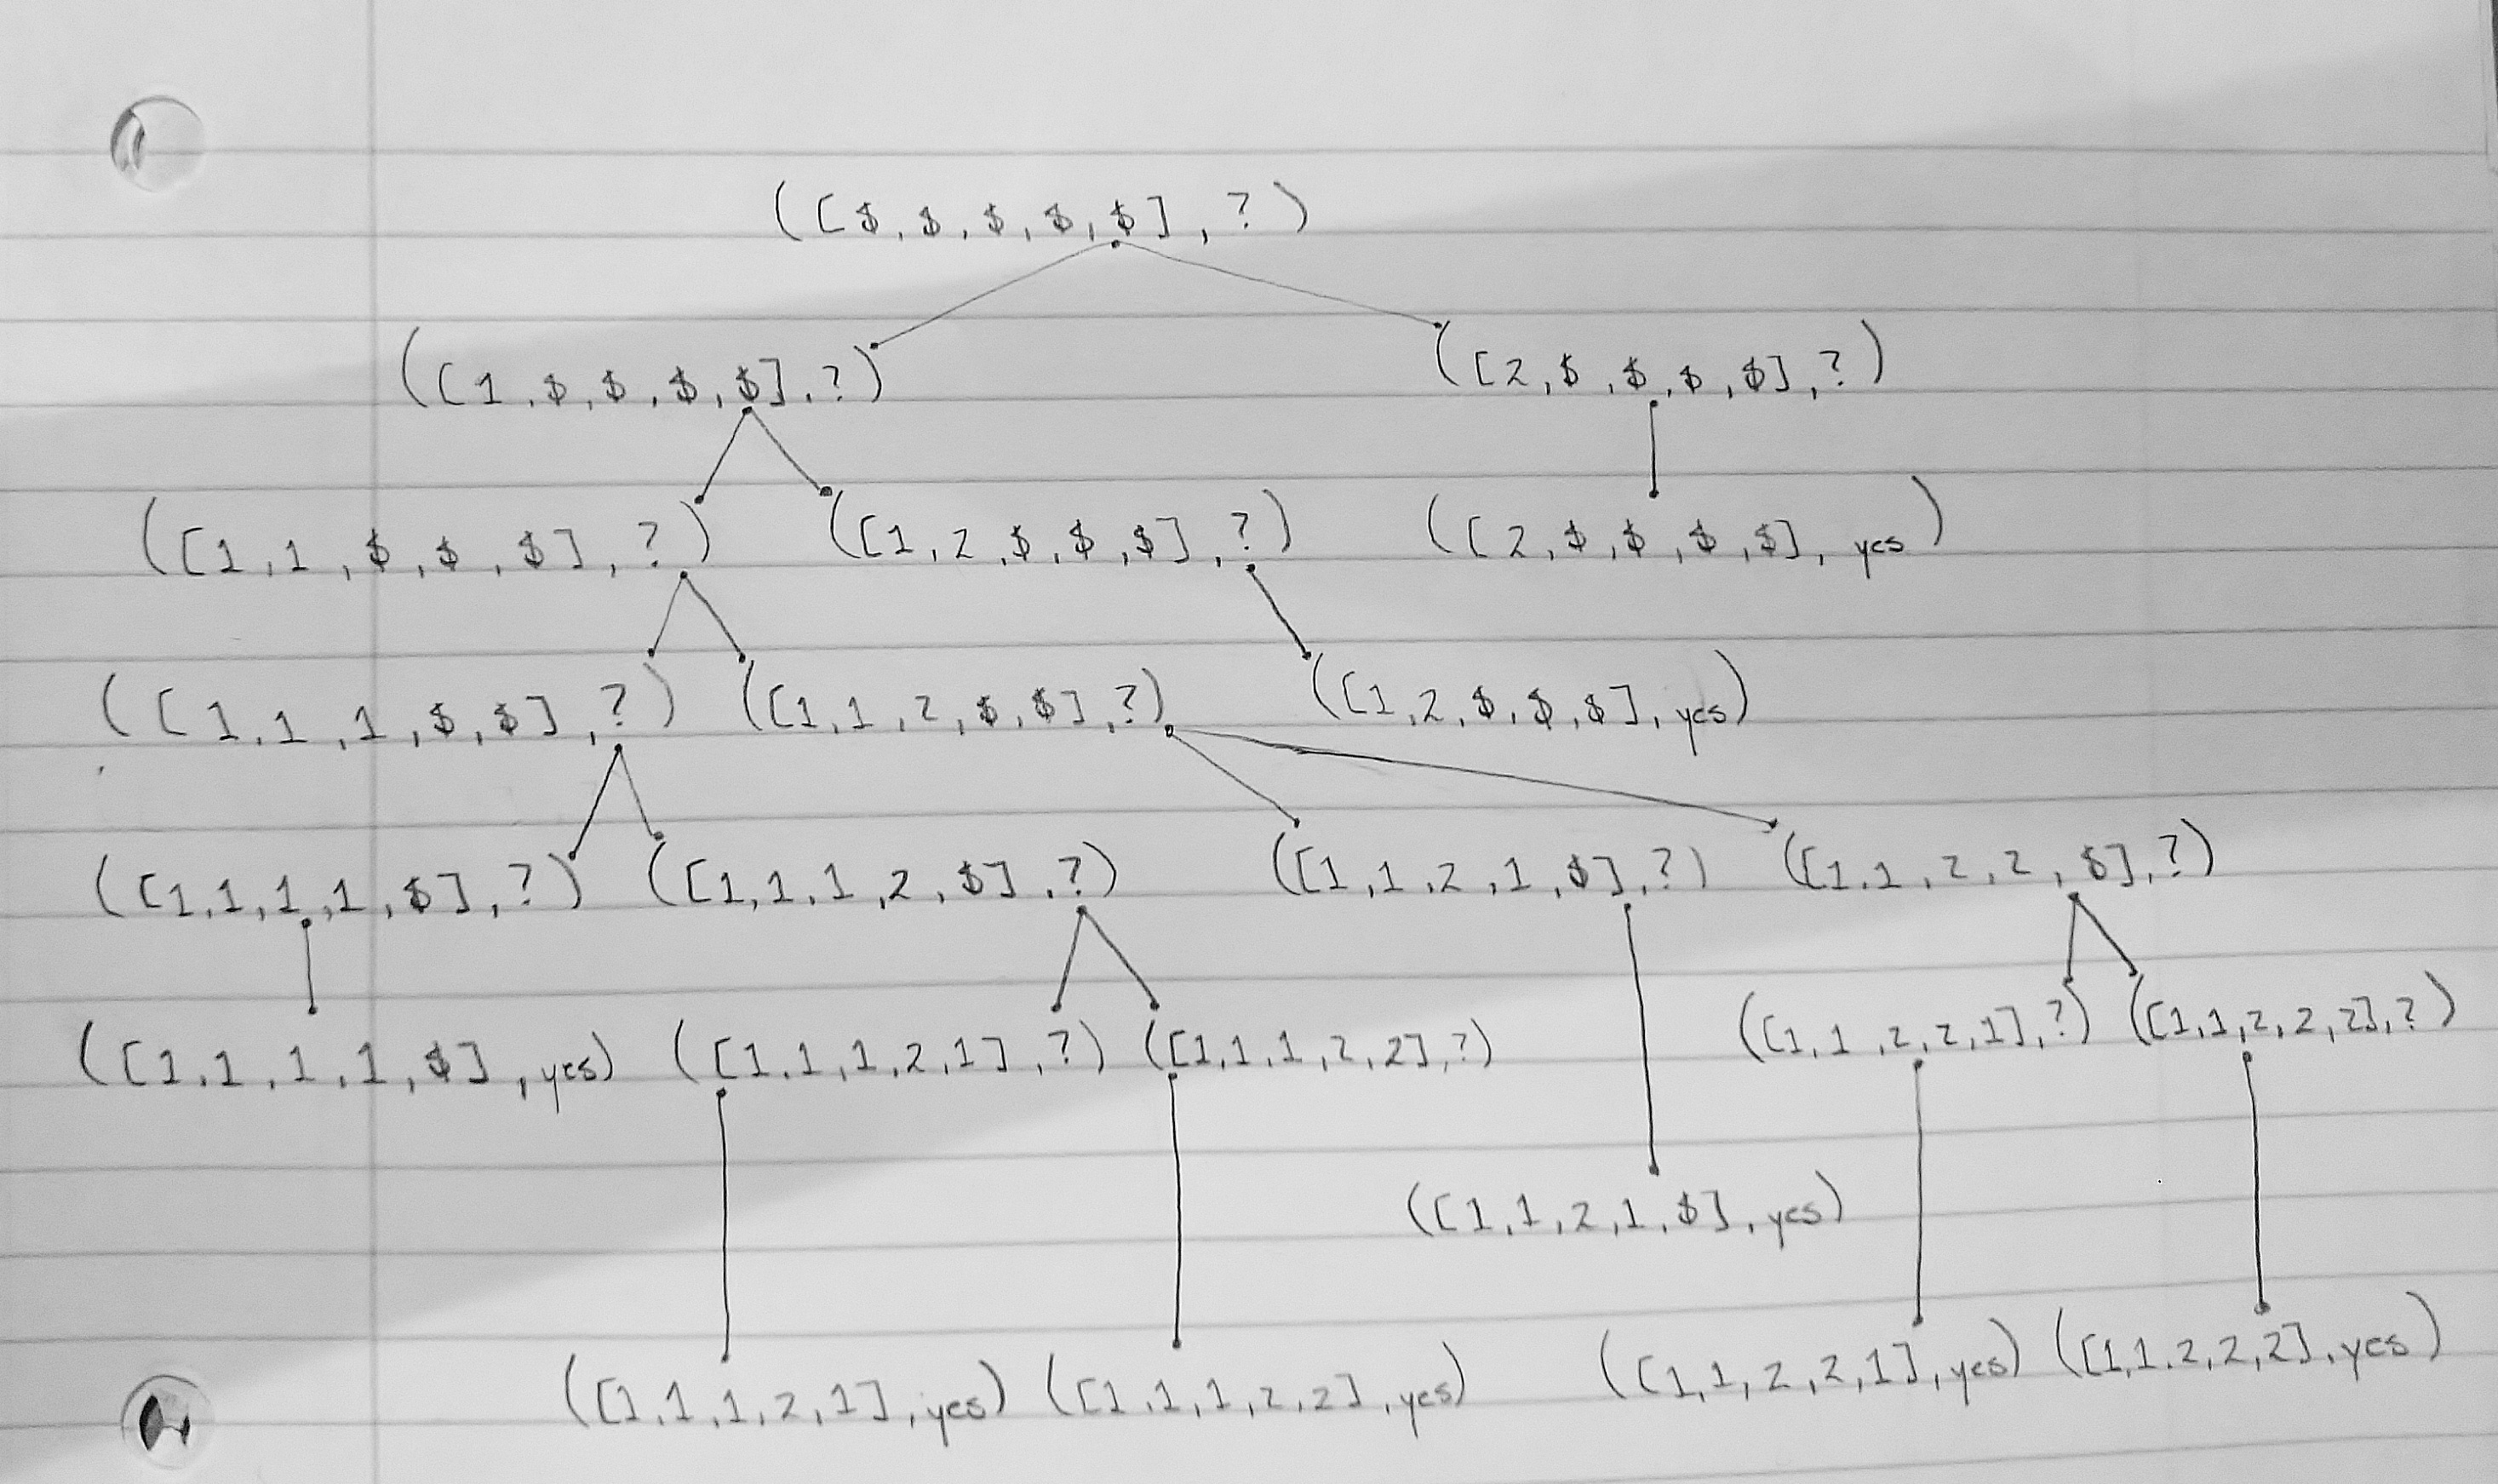 ([$,$,$,$,$],?)
([1,$,$,$,$],?) ([2,$,$,$,$],?)
([1,1,$,$,$],?) ([1,2,$,$,$],?) ([2,$,$,$,$],yes)
([1,1,1,$,$],?) ([1,1,2,$,$],?) ([1,2,$,$,$],yes)
([1,1,1,1,$],?) ([1,1,1,2,$],?) ([1,1,2,1,$],?) ([1,1,2,2,$],?)
([1,1,1,1,$],yes) ([1,1,1,2,1],?) ([1,1,1,2,2],?) ([1,1,2,2,1],?) ([1,1,2,2,2],?)
([1,1,2,1,$],yes)
([1,1,1,2,1],yes) ([1,1,1,2,2],yes) ([1,1,2,2,1],yes) ([1,1,2,2,2],yes)